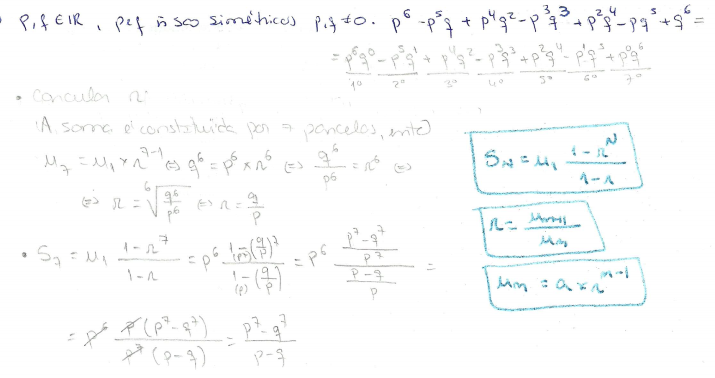 p,q ∈ IR, p e q ñ são simétricos p,q ≠ 0. p⁶ - p⁵q + p⁴q² - p³q³ + p²q⁴ - pq⁵ + q⁶ =
= p⁶q⁰ - p⁵q¹ + p⁴q² - p³q³ + p²q⁴ - p¹q⁵ + p⁰q⁶
1º 2º 3º 4º 5º 6º 7º
• Calcular r:
A soma é constituída por 7 parcelas, então
u₇ = u₁ × r⁷⁻¹ ⇔ q⁶ = p⁶ × r⁶ ⇔ q⁶/p⁶ = r⁶ ⇔
⇔ r = ⁶√(q⁶/p⁶) ⇔ r = q/p
• S₇ = u₁ (1 - r⁷)/(1 - r) = p⁶ (1 - (q/p)⁷)/(1 - (q/p)) = p⁶ ((p⁷ - q⁷)/p⁷)/((p - q)/p) =
= p⁶ p(p⁷ - q⁷)/(p⁷(p - q)) = (p⁷ - q⁷)/(p - q)
S_N = u₁ (1 - r^N)/(1 - r)
r = u_{n+1}/u_n
u_n = a × r^{n-1}